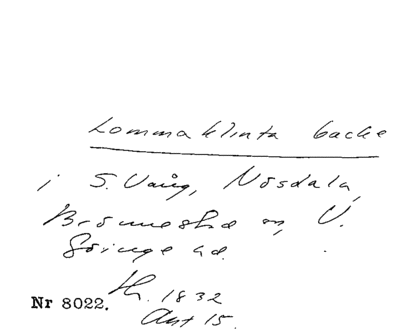 Lommaklinta backe
i S. Vång, Nösdala,
Brönnestad sn, V.
Göinge hd.
Nr 8022. Th. 1832
Akt 15.